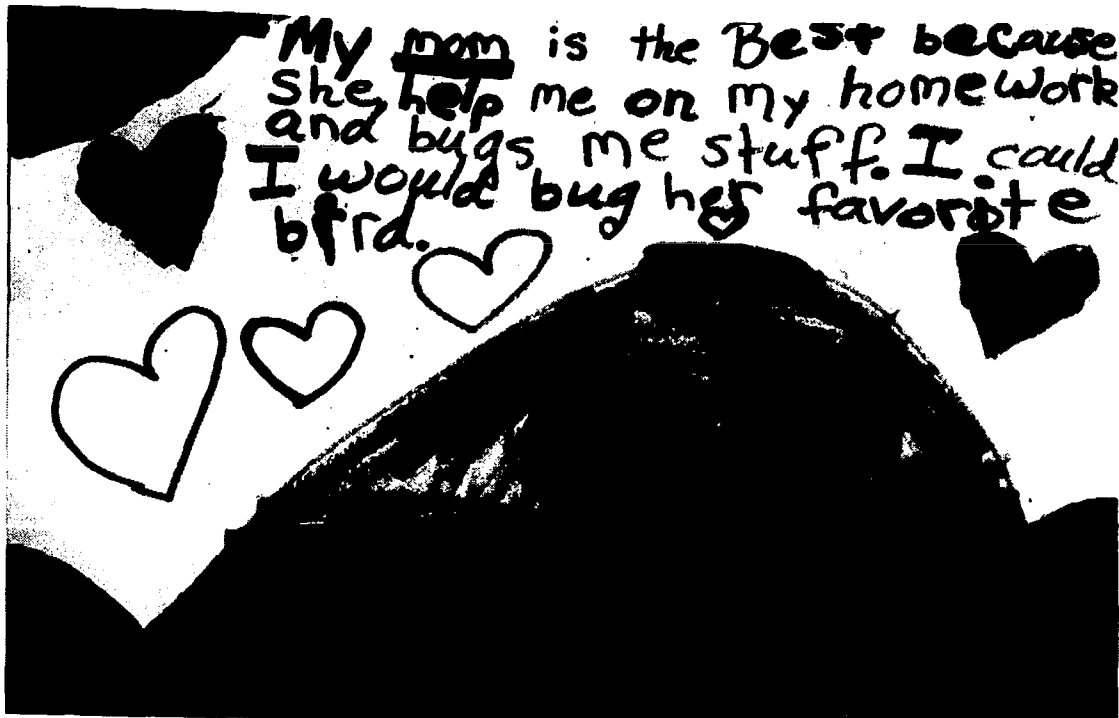 My mom is the Best because
she help me on my homework
and bugs me stuff. I. could
I would bug her favorite
bird.